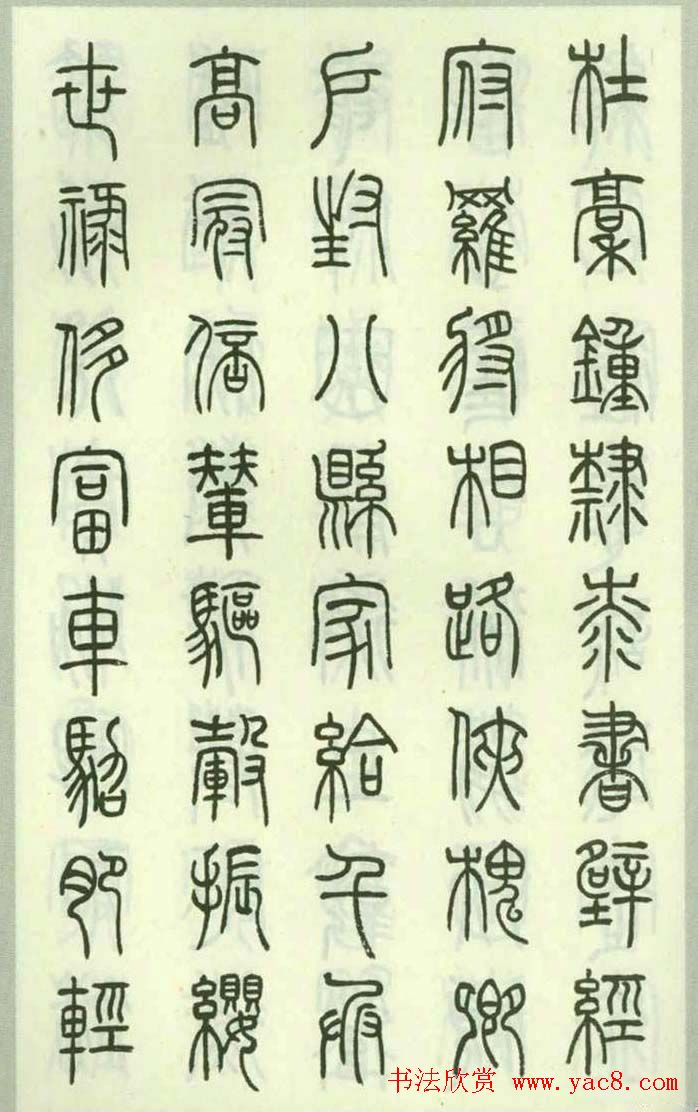 杜稾鐘隸桼書壁經
府羅將相路俠槐卿
戶封八縣家給千兵
高冠陪輦驅轂振纓
世祿侈富車駕肥輕
书法欣赏 www.yac8.com